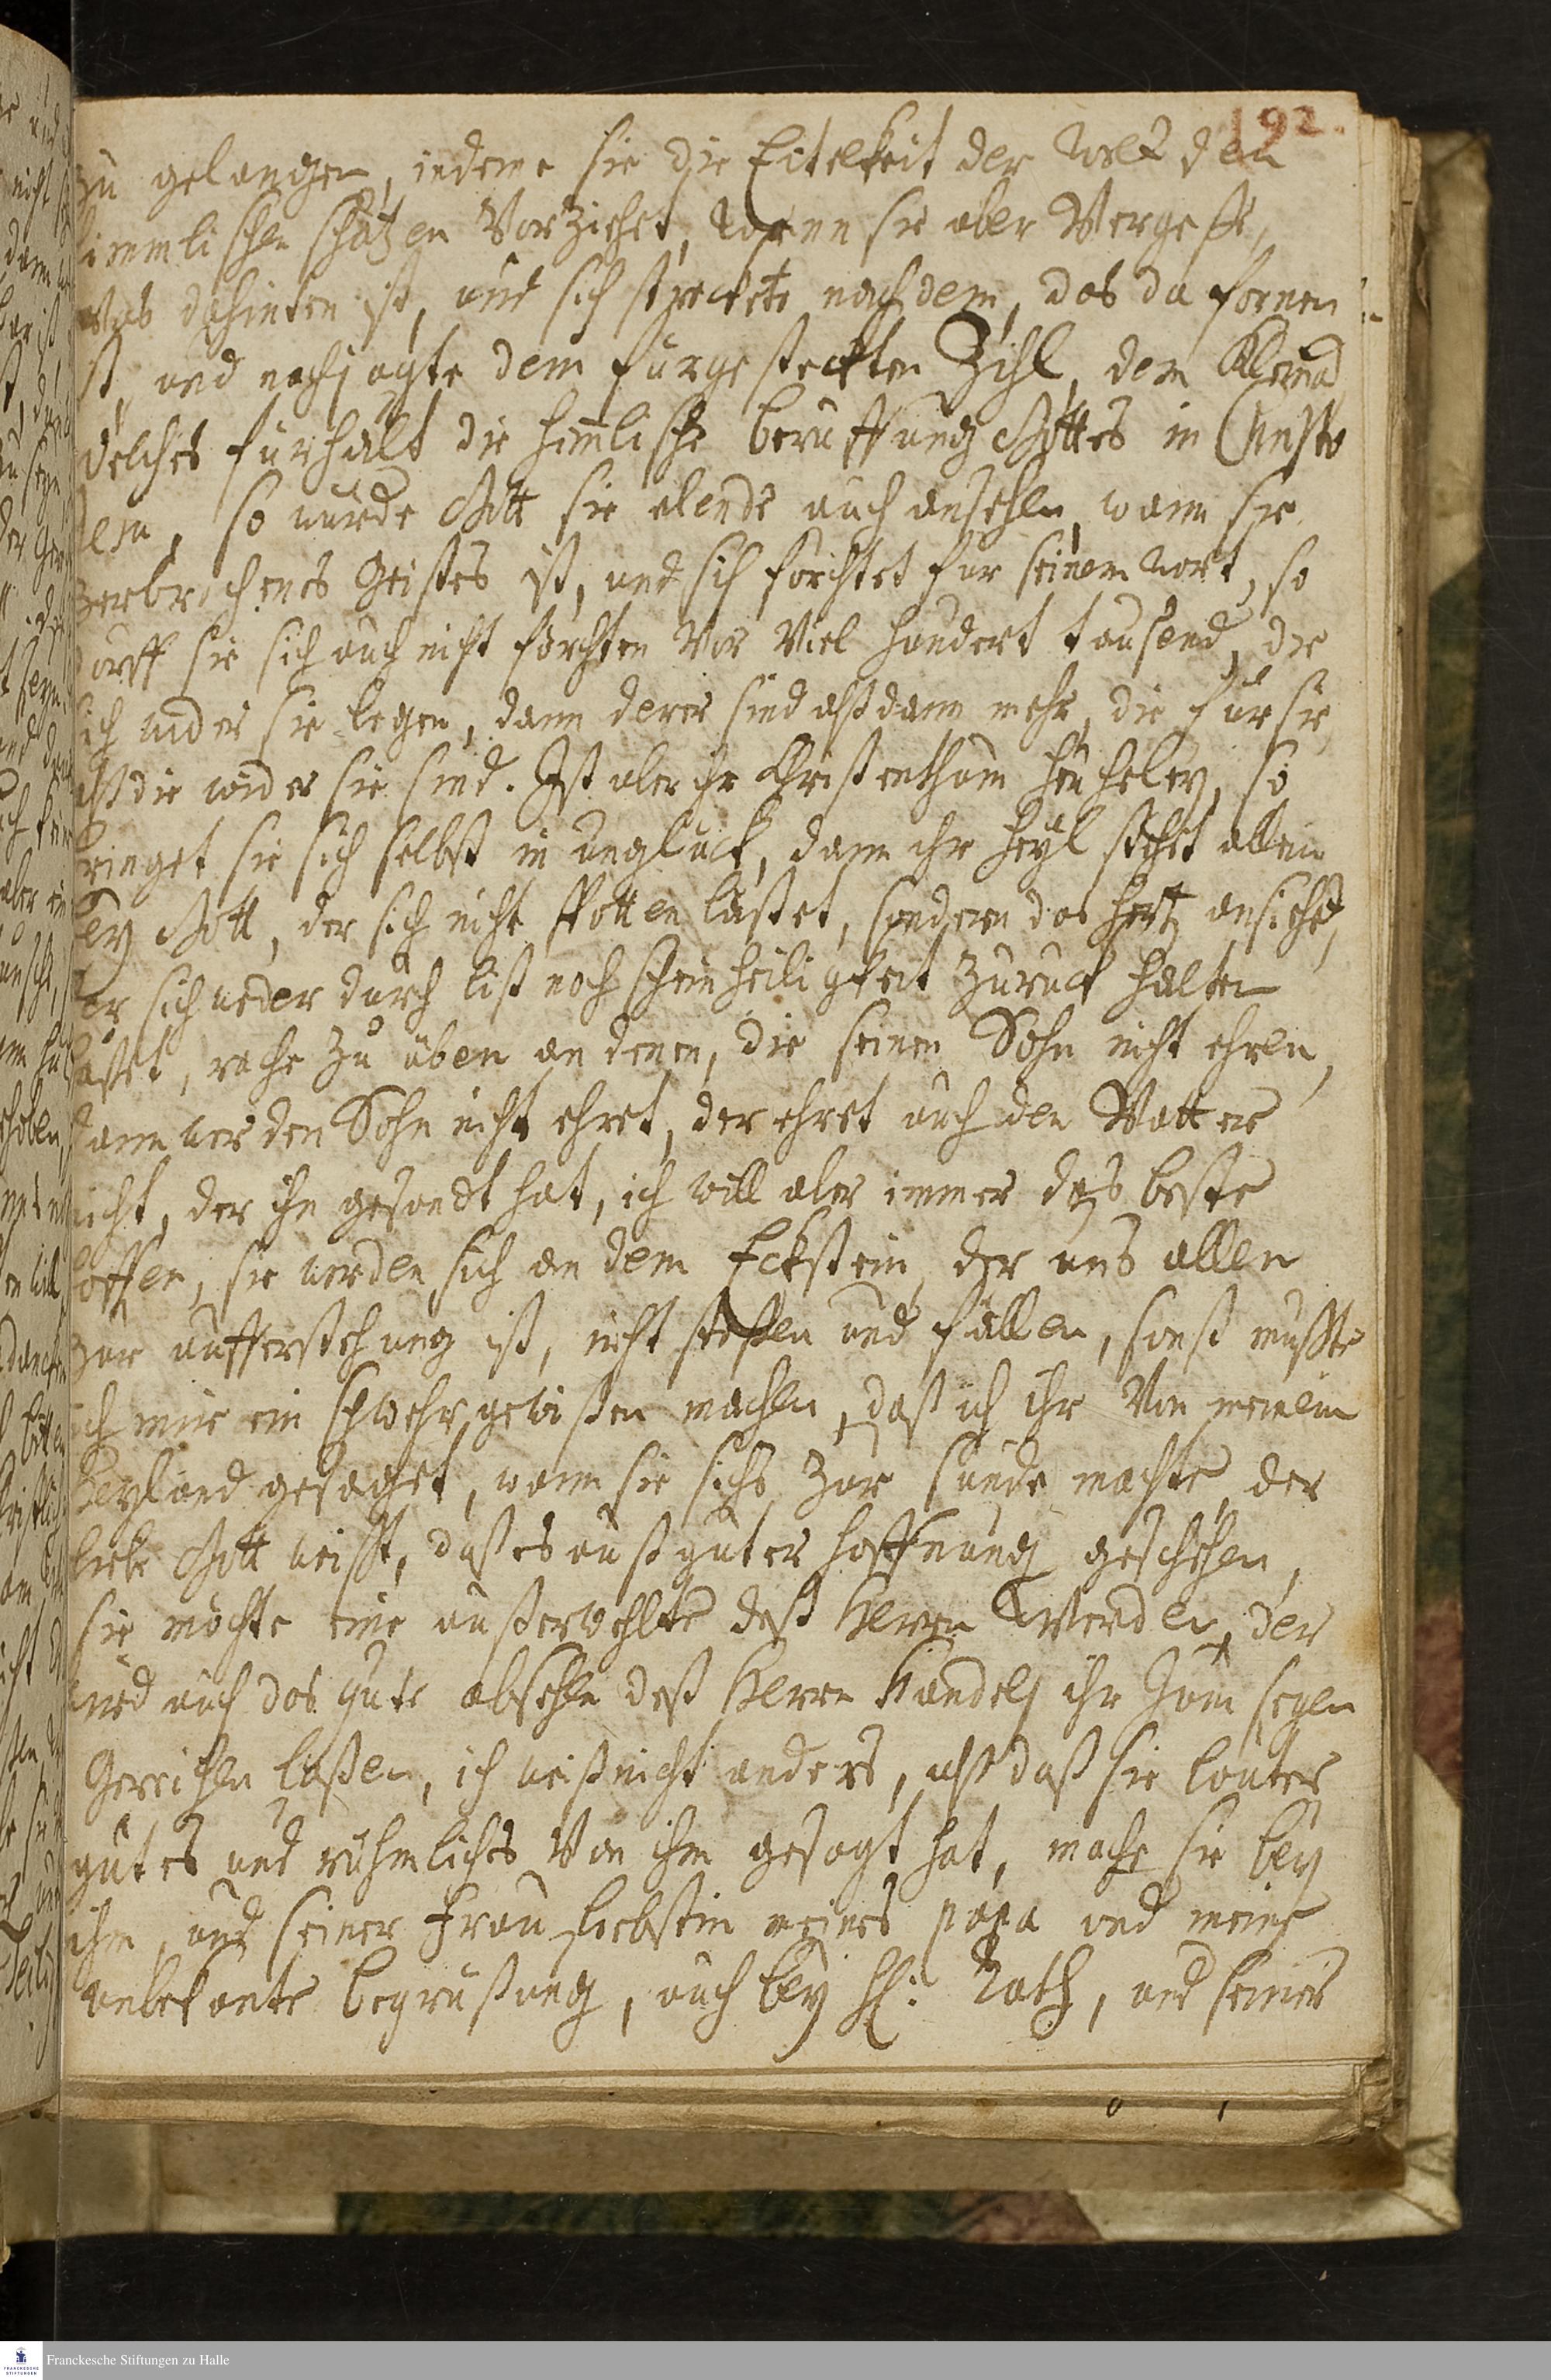 192.
zu gelangen, indeme sie die Eitelkeit der Welt den
himmlischen schätzen Vorziehet, Wenn sie aber Vergesse,
was dahinten ist, und sich streckete nach dem, das da fornen
ist, und nachjagte dem fürgesteckten Zihl, dem Kleinod
welches fürhält die himlische beruffung Gottes in Christo
Jesu, so würde Gott sie elende auch ansehen, wann sie
zerbrochenes Geistes ist, und sich förchtet für seinem wort, so
dorff sie sich auch nicht förchten Vor Viel hundert tausend, die
sich wider sie legen, dann derer sind alßdann mehr, die für sie
alß die wider sie sind. Ist aber ihr Christenthum heucheley, so
bringet sie sich selbst in unglück, dann ihr heyl stehet allein
bey Gott, der sich nicht spotten lässet, sondern das hertz ansiehet,
der sich weder durch list noch scheinheiligkeit zuruck halten
lässet, rache zu üben an denen, die seinen Sohn nicht ehren,
dann wer den Sohn nicht ehret, der ehret auch den Vatter
nicht, der ihn gesandt hat, ich will aber immer das beste
hoffen, sie werden sich an dem Eckstein, der uns allen
zur aufferstehung ist, nicht stoßen und fallen, sonst müsste
ich mir ein schwehr gewißen machen, daß ich ihr Von meinem
Heyland gesaget, wann sie sichs zur sünde machte, der
liebe Gott weisst, daß es auß guter hoffnung geschehen,
sie möchte eine außerwehlte deß Herren Werden, der
wird auch das gute absehen deß Herrn Händels ihr zum segen
Gereichen laßen, ich weiß nicht anders, alß daß sie lauter
gutes und rühmliches Von ihm gesagt hat, mache sie bey
ihm, und seiner Frau Liebstin meines papa und meine
unbekante begrüßung, auch bey H: Rath, und seiner
Franckesche Stiftungen zu Halle